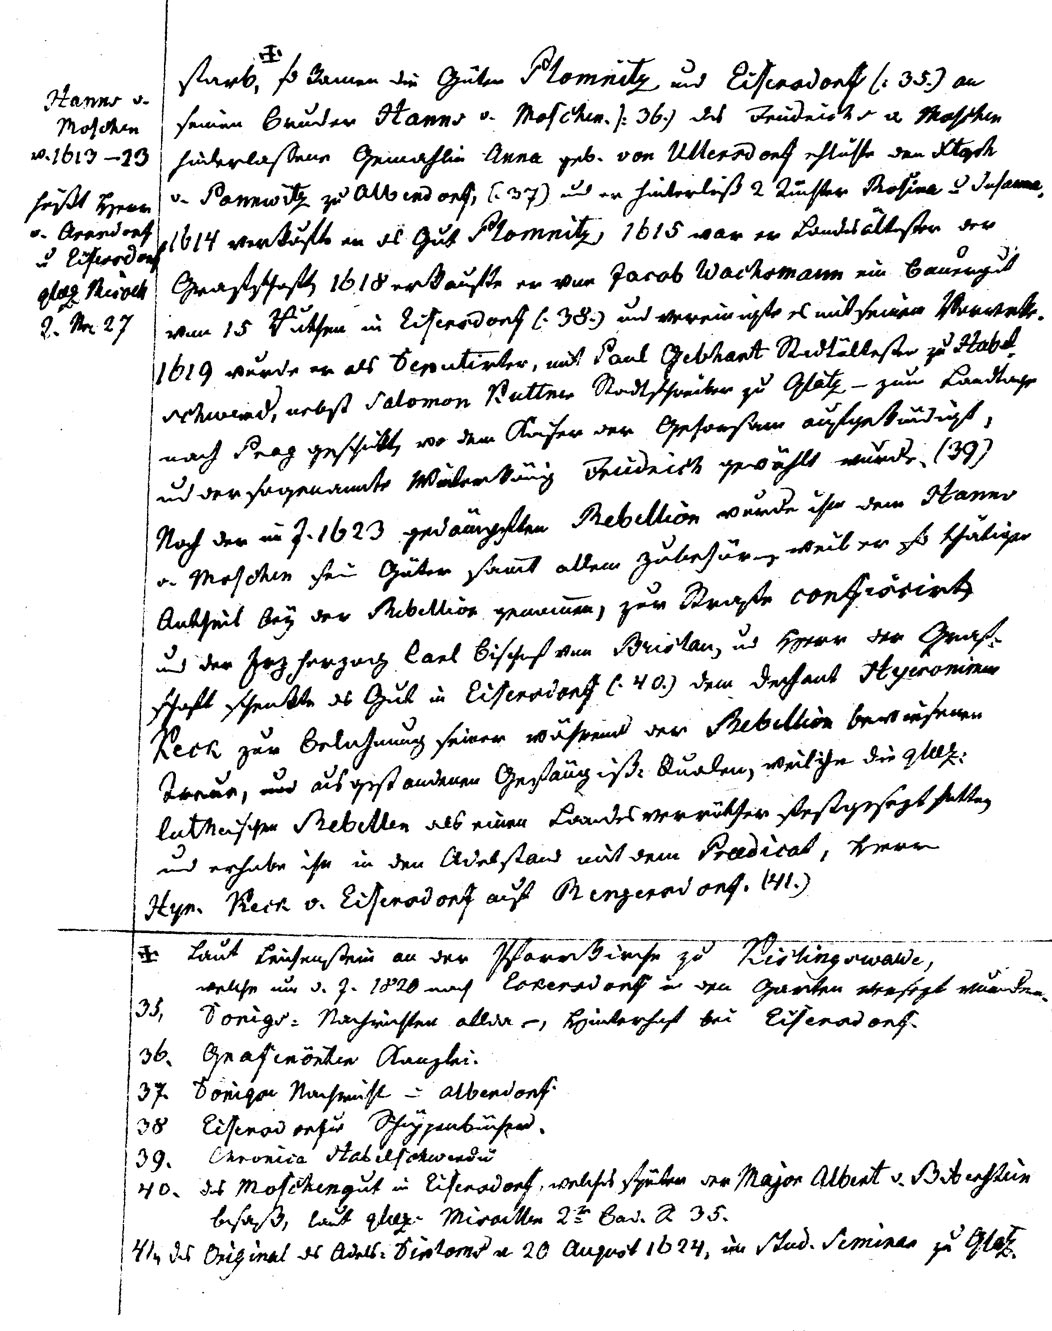 Hanns v.
Moschen
v. 1613 – 23
heißt Herr
v. Arnsdorf
u Eisersdorf
glaz Miscell
2. Nr 27
starb, ✠ so kamen die Güter Plomnitz und Eisersdorf (: 35.) an
seinen Bruder Hanns v. Moschen. (: 36.) des Friedrichs v Moschen
hinterlaßene Gemahlin Anna geb. von Ullersdorf ehlichte den
v. Pannwitz zu Albendorf, (: 37) und er hinterließ 2 Töchter Rosina u Johanna,
1614 verkaufte er das Gut Plomnitz, 1615 war er Landesältester der
Grafschaft, 1618 erkaufte er von Jacob Wachsmann ein Bauergut
von 15 Ruthen in Eisersdorf (: 38.) und vereinigte es mit seinem Vorwerke.
1619 wurde er als Deputirter, mit Paul Gebhart Stadtältester zu Habel-
schwerd, nebst Salomon Kuttner Stadtschreiber zu Glatz – zum Landtage
nach Prag geschikt, wo dem Kaiser der Gehorsam aufgekündigt,
und der sogenannte Winterkönig Friedrich gewählt wurde. (39)
Nach der im J. 1623 gedämpften Rebellion wurde ihm dem Hanns
v. Moschen sein Güter samt allem Zubehör, weil er so thätigen
Antheil bey der Rebellion genommen, zur Strafe confiscirt,
und der Erzherzog Carl Bischof von Breslau, und Herr der Graf-
schaft schenkte das Gut in Eisersdorf (: 40.) dem Dechant Hyeronimus
Keck zur Belohnung seiner während der Rebellion bewiesenen
Treue, und ausgestandenen Gefängniß: Qualen, welche die glaz:
lutherischen Rebellen als einen Landesverräther festgesezt hatten,
und erhobe ihn in den Adelstand mit dem Prædicat, Herr
Hyr. Keck v. Eisersdorf auf Rengersdorf. (41.)
✠ Laut Leichenstein an der Pfarrkirche zu Kislingswalde,
welche um d. J. 1820 nach Lokersdorf in den Garten versezt wurden.
35, Donigs: Nachrichten allda –, Hinterhof bei Eisersdorf.
36. Grafenörter Kanzlei.
37. Doniger Nachricht – Albendorf
38 Eisersdorfer Schöppenbücher.
39. Chronica Habelschwerdii
40. das Moschengut in Eisersdorf, welches später der Major Albert v. Biberstein
besaß, laut glaz: Miscellen 2r Bd. S 35.
41, das Original des Adels: Diploms v 20 August 1624, im Stud. Seminar zu Glatz.